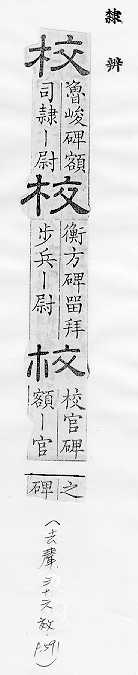 隸辨
校
魯峻碑額
司隸ー尉
校
衡方碑留拜
步兵ー尉
校
校官碑之
額ー官碑
(去聲 三十六效 P.591)